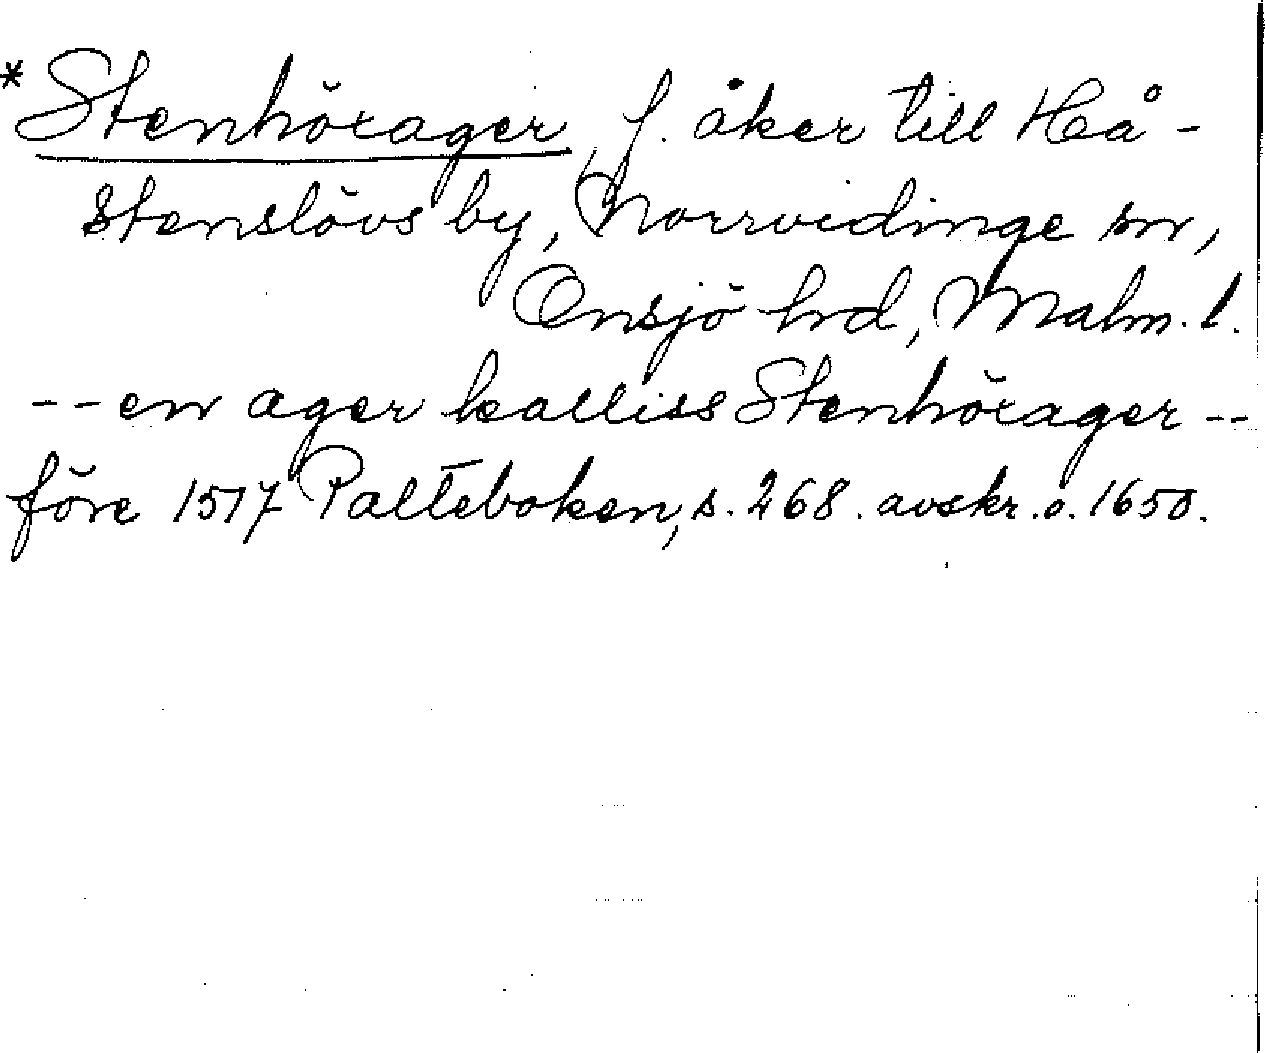 *Stenhöragер, f. åker till Hå-
stenslövs by, Norrvidinge sn,
Onsjö hrd, Malm. l.
-- en ager kalliss Stenhörager --
före 1517 Palteboken, s. 268. avskr. o. 1650.